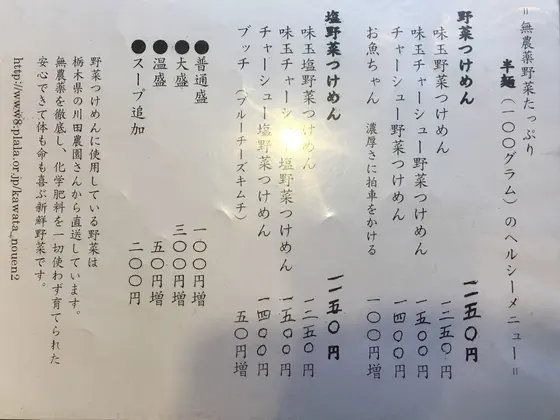 ＝無農薬野菜たっぷり
半麺（一〇〇グラム）のヘルシーメニュー＝
野菜つけめん 一一五〇円
味玉野菜つけめん 一二五〇円
味玉チャーシュー野菜つけめん 一五〇〇円
チャーシュー野菜つけめん 一四〇〇円
お魚ちゃん 濃厚さに拍車をかける 一〇〇円
塩野菜つけめん 一一五〇円
味玉塩野菜つけめん 一二五〇円
味玉チャーシュー塩野菜つけめん 一五〇〇円
チャーシュー塩野菜つけめん 一四〇〇円
ブッチ（ブルーチーズキムチ） 五〇円増
●普通盛 一〇〇円増
●大盛 三〇〇円増
●温盛 五〇円増
●スープ追加 二〇〇円
野菜つけめんに使用している野菜は
栃木県の川田農園さんから直送しています。
無農薬を徹底し、化学肥料を一切使わず育てられた
安心できて体も命も喜ぶ新鮮野菜です。
http://www8.plala.or.jp/kawata_nouen2